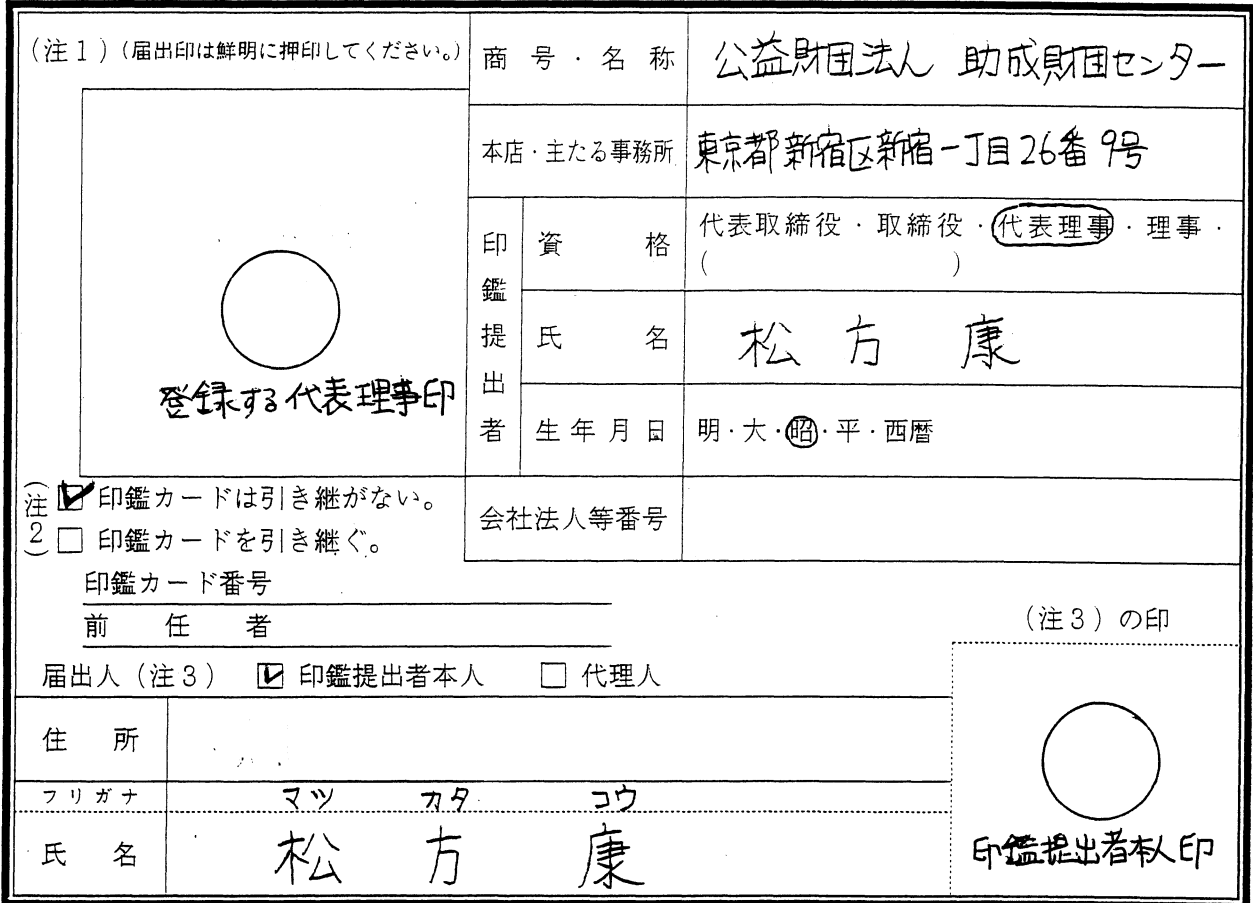 (注1)(届出印は鮮明に押印してください。)
登録する代表理事印
商号・名称 公益財団法人 助成財団センター
本店・主たる事務所 東京都新宿区新宿一丁目26番9号
印鑑提出者
資格 代表取締役・取締役・代表理事・理事・
( )
氏名 松方 康
生年月日 明・大・昭・平・西暦
会社法人等番号
(注2)
☑ 印鑑カードは引き継がない。
□ 印鑑カードを引き継ぐ。
印鑑カード番号
前任者
届出人(注3) ☑ 印鑑提出者本人 □ 代理人
住所
フリガナ マツ カタ コウ
氏名 松方 康
(注3)の印
印鑑提出者本人印